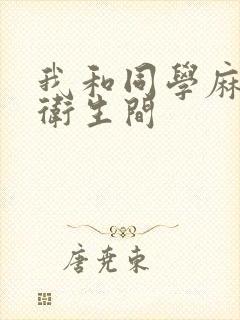 我和同學麻
衛生間
唐堯東